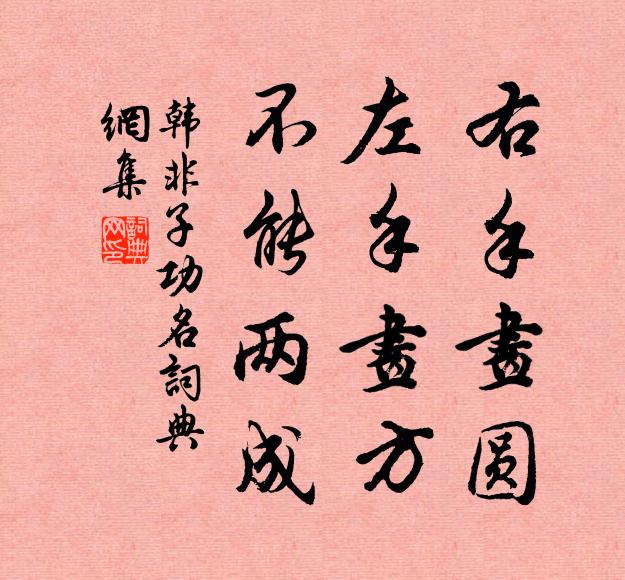 右手畫圆
左手畫方
不能两成
韩非子功名詞典
網集
詞典
网印